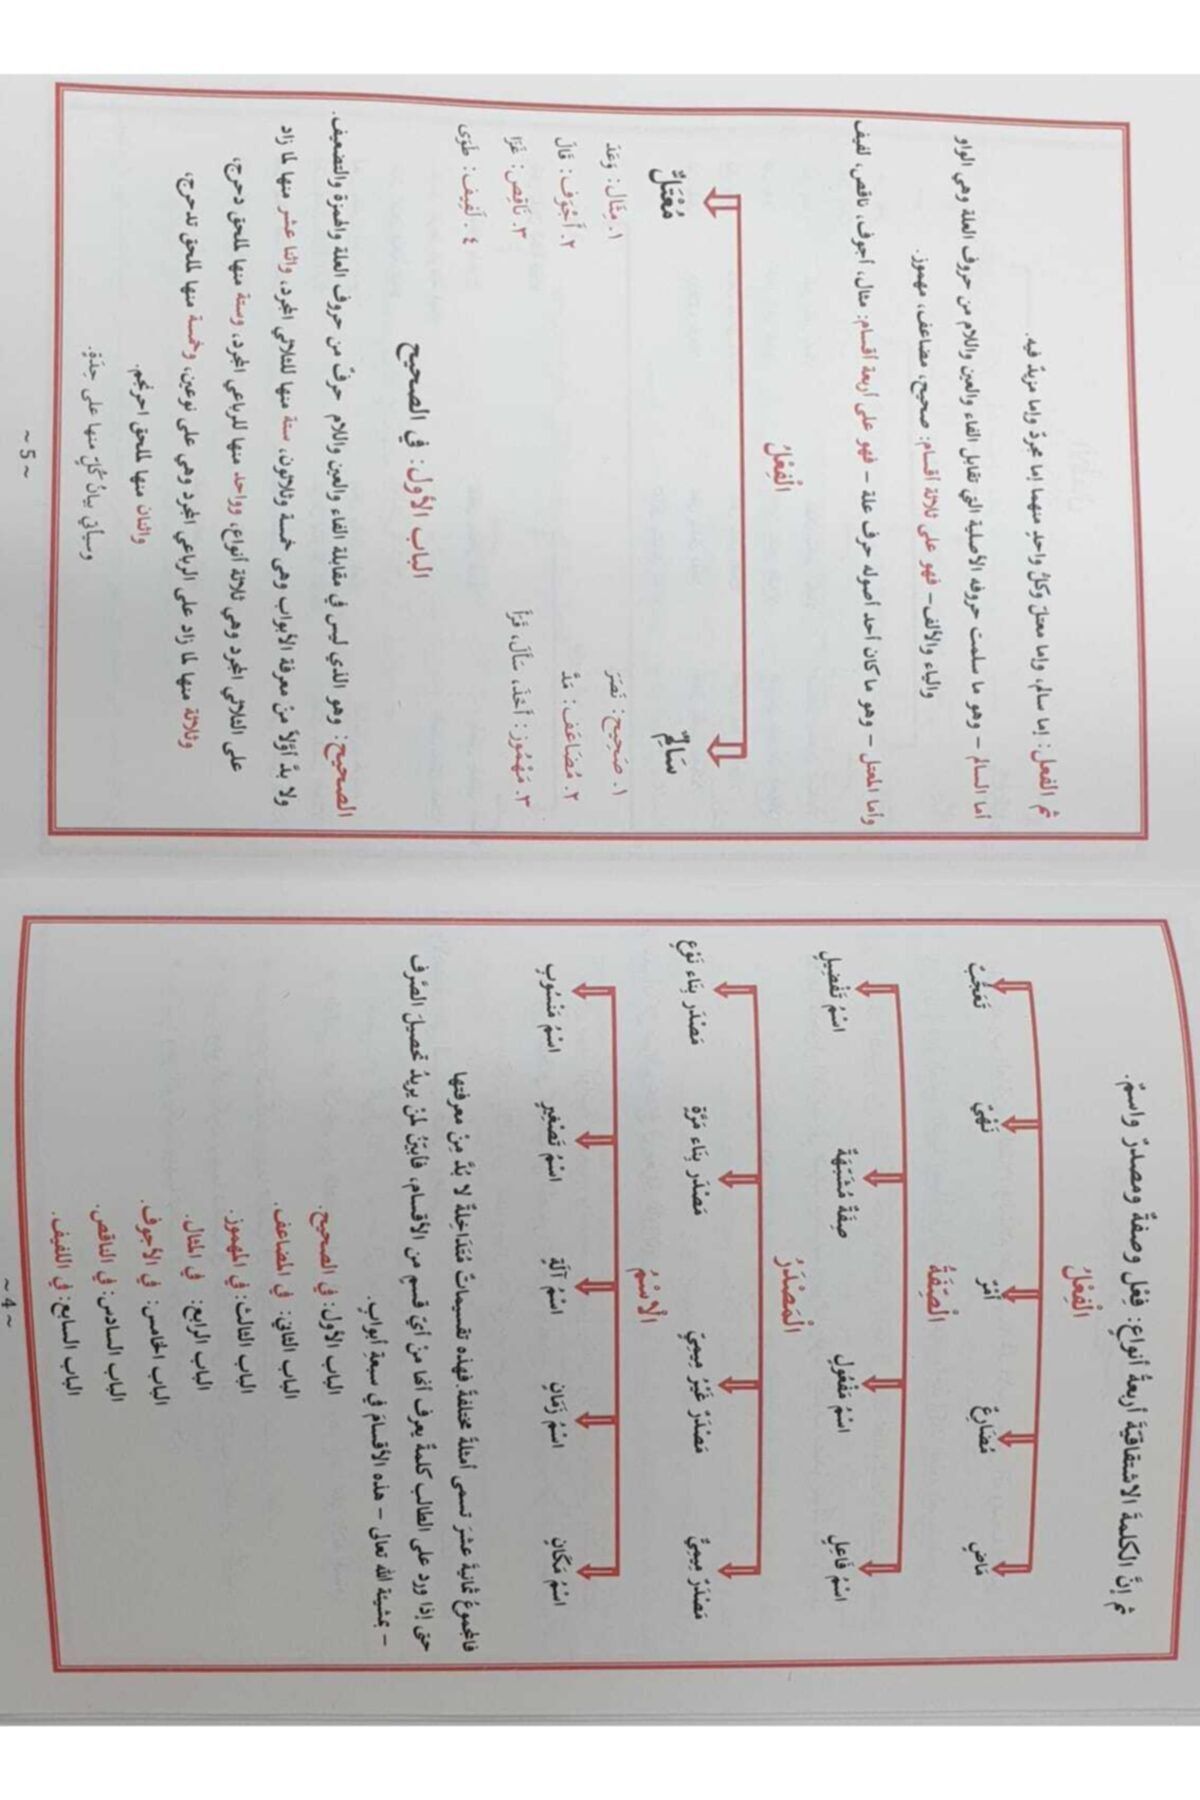 ثم إنَّ الكلمةَ الاشتقاقيّةَ أربعةُ أنواعٍ: فِعْل وصفةٌ ومصدرٌ واسمٌ.
اَلْفِعْلُ
مَاضٍ مُضَارِعٌ أَمْرٌ نَهْيٌ تَعَجُّبٌ
اَلصِّفَةُ
اسْمُ فَاعِلٍ اسْمُ مَفْعُولٍ صِفَةٌ مُشَبَّهَةٌ اسْمُ تَفْضِيلٍ
اَلْمَصْدَرُ
مَصْدَرٌ مِيمِيٌّ مَصْدَرٌ غَيْرُ مِيمِيٍّ مَصْدَر بِنَاء مَرَّةٍ مَصْدَر بِنَاء نَوْعٍ
اَلْاِسْمُ
اسْمُ مَكَانٍ اسْمُ زَمَانٍ اسْمُ آلَةٍ اسْمُ تَصْغِيرٍ اسْمُ مَنْسُوبٍ
فالمجموعُ ثمانيةَ عشرَ تسمى أمثلةً مختلفةً. فهذه تقسيماتٌ مُتَدَاخِلةٌ لا بُدَّ مِنْ معرفتها
حتى إذا ورد على الطالب كلمةٌ يعرف أنها منْ أيِّ قسمٍ من الأقسام، فأبيّنُ لمنْ يريدُ تحصيلَ الصَّرْف
– بمشيئة الله تعالى – هذه الأقسامَ في سبعةِ أبوابٍ.
الباب الأول: في الصحيح.
الباب الثاني: في المضاعف.
الباب الثالث: في المهموز.
الباب الرابع: في المثال.
الباب الخامس: في الأجوف.
الباب السادس: في الناقص.
الباب السابع: في اللفيف.
~ 4 ~
ثم الفعل: إما سالم، وإما معتل وكلُّ واحدٍ منهما إما مجردٌ وإما مزيدٌ فيه.
أما السالم – وهو ما سلمت حروفه الأصلية التي تقابل الفاء والعين واللام من حروف العلة وهي الواو
والياء والألف – فهو على ثلاثة أقسام: صحيح، مضاعف، مهموز.
وأما المعتل – وهو ما كان أحد أصوله حرف علة – فهو على أربعة أقسام: مثال، أجوف، ناقص، لفيف
اَلْفِعْلُ
سَالِمٌ مُعْتَلٌّ
١. صَحِيح: نَصَرَ ١. مِثَال: وَعَدَ
٢. مُضَاعَف: مَدَّ ٢. أَجْوَف: قَالَ
٣. مَهْمُوز: أَخَذَ، سَأَلَ، قَرَأَ ٣. نَاقِص: غَزَا
٤. لَفِيف: طَوَى
الباب الأول: في الصحيح
الصحيح: وهو الذي ليس في مقابلة الفاء والعين واللام حرفٌ من حروف العلة والهمزة والتضعيف.
ولا بدَّ أوّلاً منْ معرفة الأبواب وهي خمسة وثلاثون، ستة منها للثلاثي المجرد، واثنا عشر منها لما زاد
على الثلاثي المجرد وهي ثلاثة أنواع، وواحد منها للرباعي المجرد، وستة منها لملحق دحرج،
وثلاثة منها لما زاد على الرباعي المجرد وهي على نوعين، وخمسة منها لملحق تدحرج،
واثنان منها لملحق احرنجم.
وسيأتي بيانُ كُلٍّ منها على حِدَةٍ.
~ 5 ~